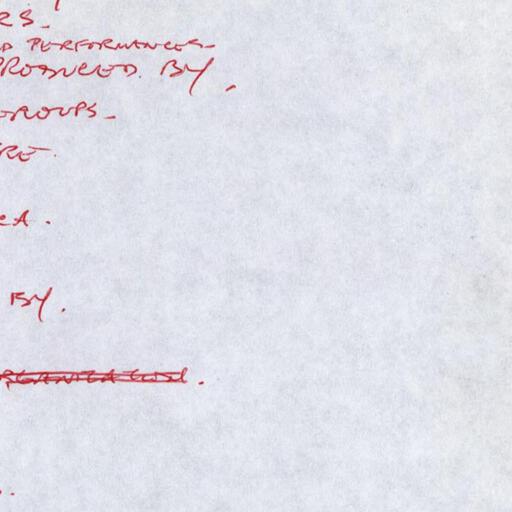 RS-
D PERFORMANCES-
PRODUCED. BY,
GROUPS-
RE.
CA.
BY.
ORGANIZATION.